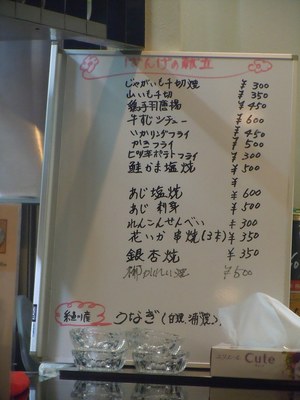 じゃがいも千切り ¥300
山いも千切 ¥350
¥450
牛すじシチュー ¥600
いかリングフライ ¥450
かきフライ ¥500
ポテトフライ ¥300
鮭かま塩焼 ¥500
¥
あじ塩焼 ¥600
あじ刺身 ¥500
れんこんせんべい ¥300
花いか串焼(3本) ¥350
銀杏焼 ¥350
¥500
うなぎ(白焼、蒲焼)
Cute